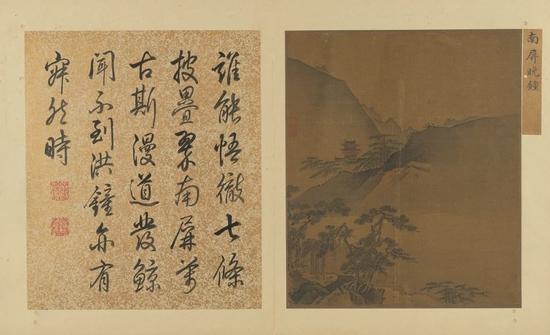 南屏晚鐘
誰能悟徹七條
披疊翠南屏萬
古斯漫道發鯨
聞不到洪鐘亦有
寂然時